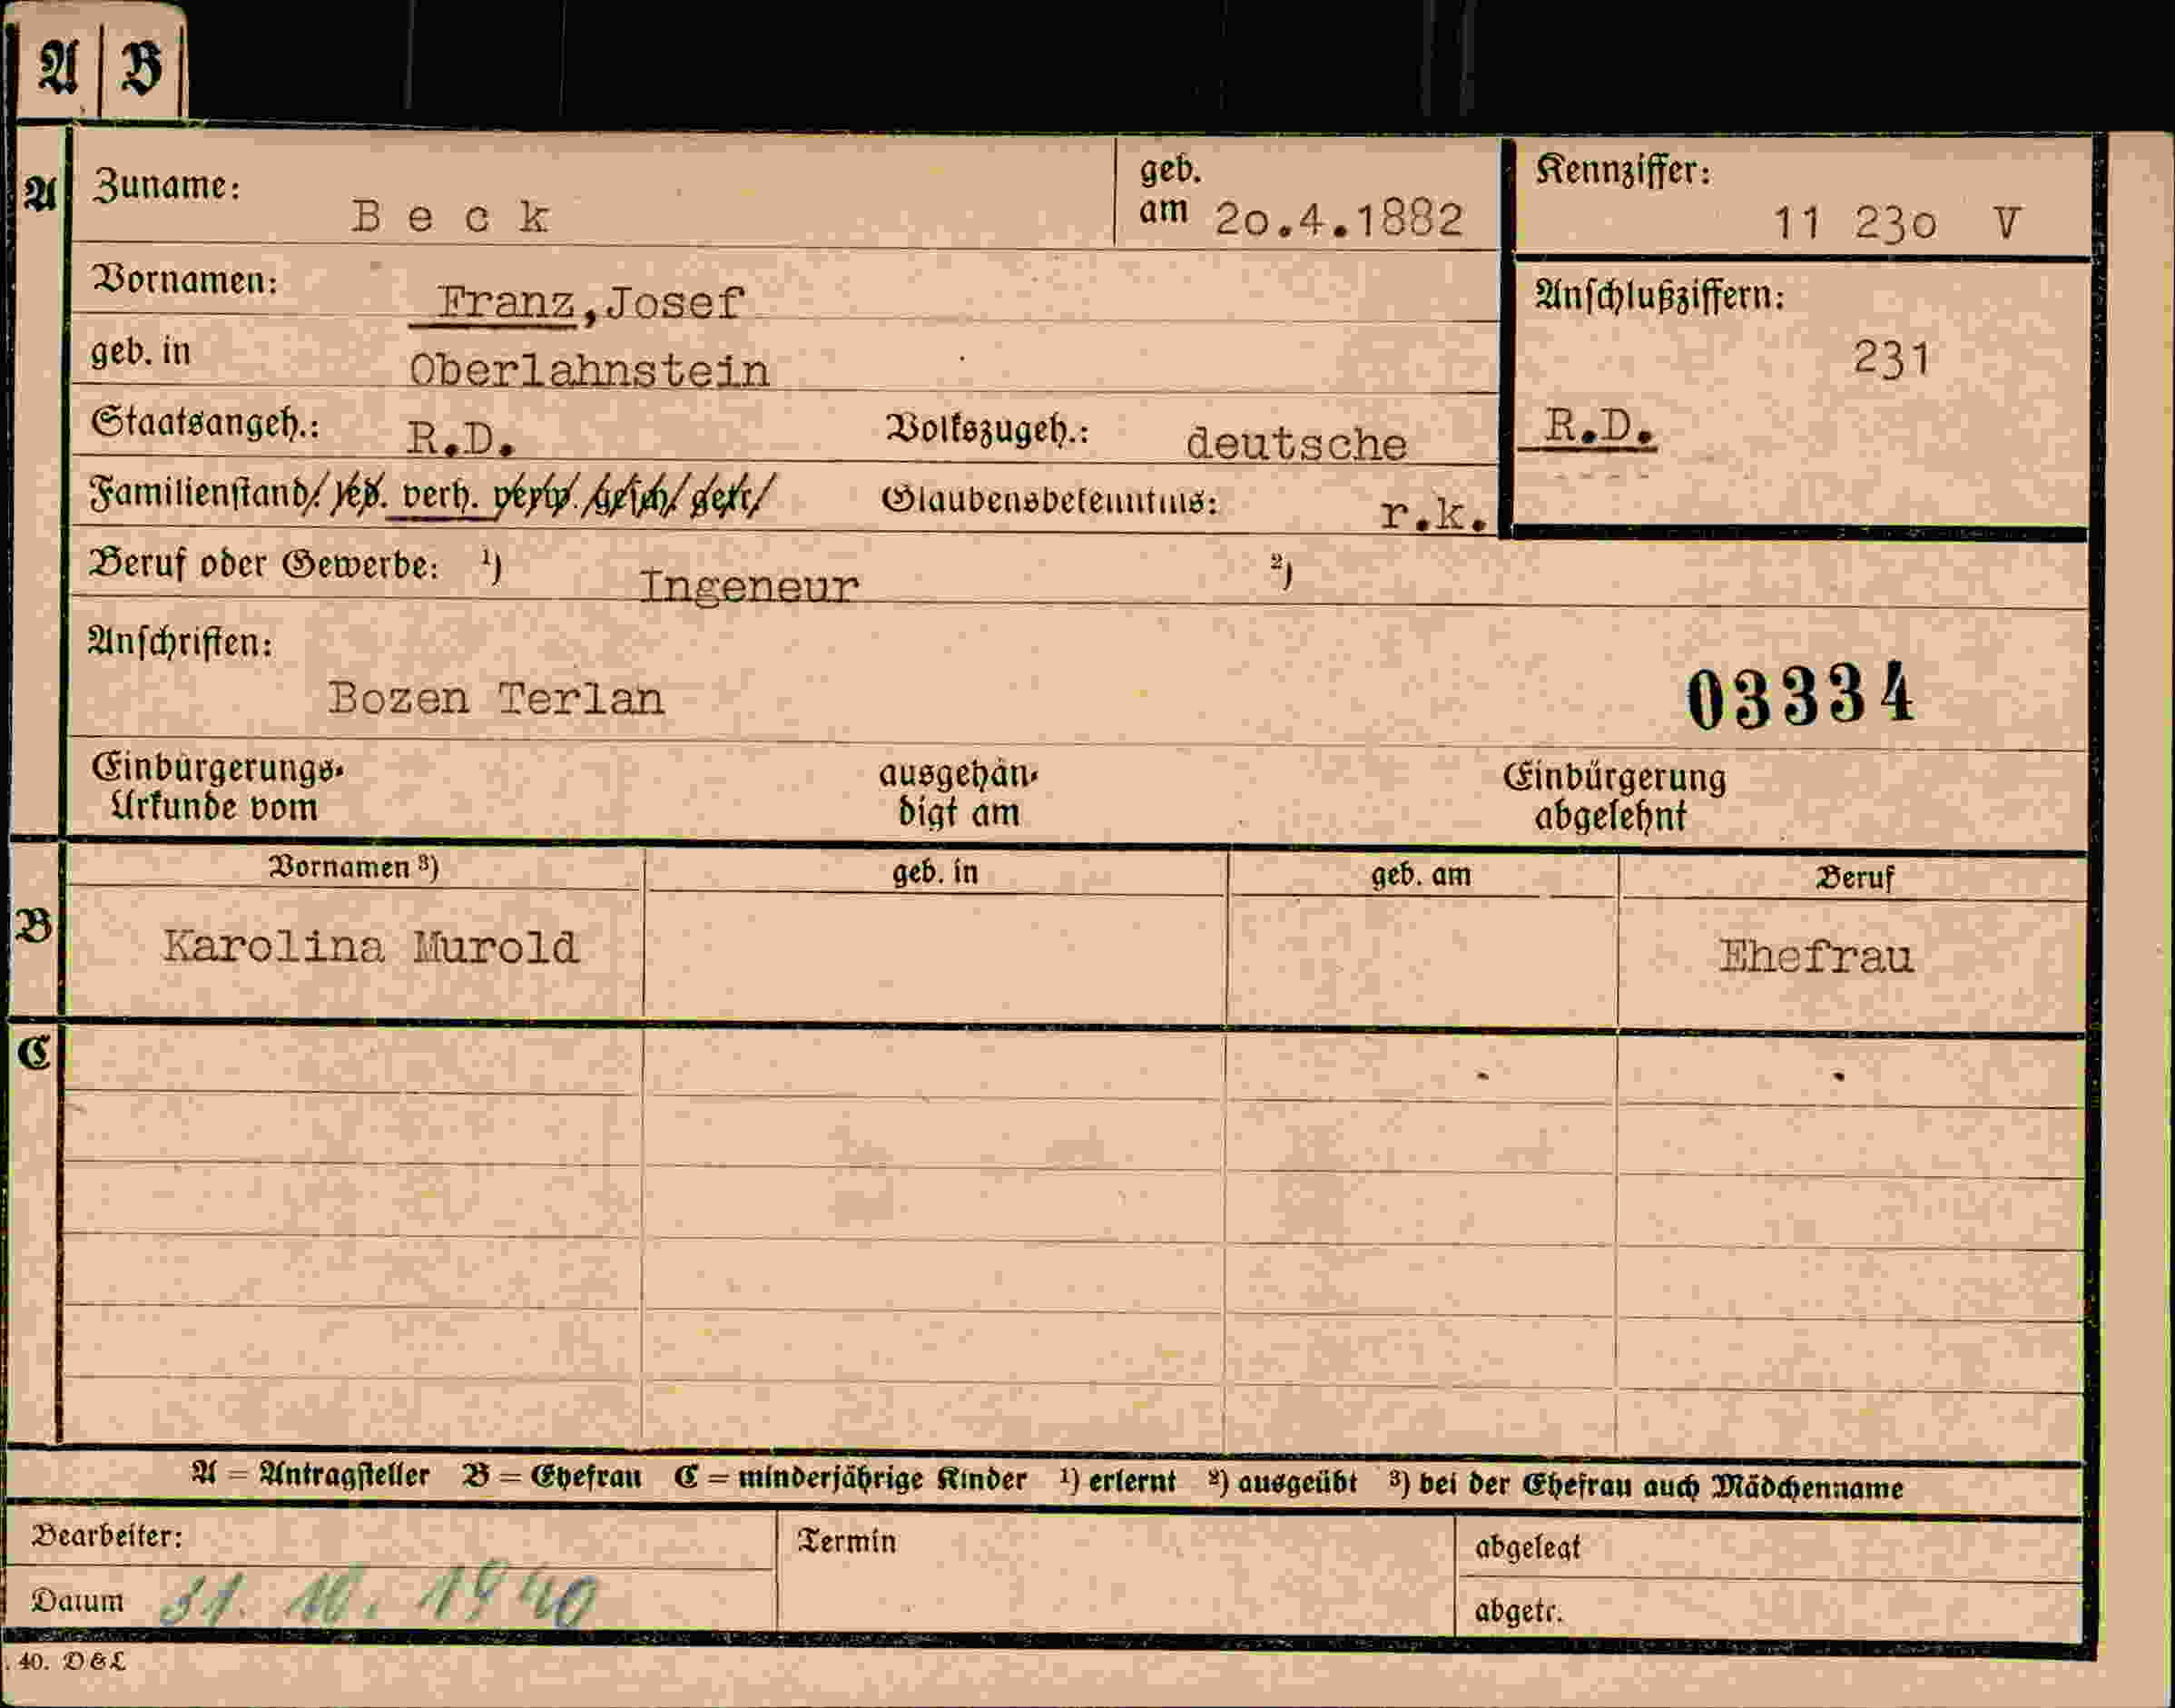 A B
A Zuname: Beck geb. am 20.4.1882 Kennziffer: 11 230 V
Vornamen: Franz,Josef Anschlußziffern:
geb. in Oberlahnstein 231
Staatsangeh.: R.D. Volkszugeh.: deutsche R.D.
Familienstand: led. verh. verw. gesch. getr. Glaubensbekenntnis: r.k.
Beruf oder Gewerbe: ¹) Ingeneur ²)
Anschriften:
Bozen Terlan 03334
Einbürgerungs-Urkunde vom ausgehändigt am Einbürgerung abgelehnt
Vornamen ³) geb. in geb. am Beruf
B Karolina Murold Ehefrau
C
A = Antragsteller B = Ehefrau C = minderjährige Kinder ¹) erlernt ²) ausgeübt ³) bei der Ehefrau auch Mädchenname
Bearbeiter: Termin abgelegt
Datum 31. 10. 1940 abgetr.
40. D&L